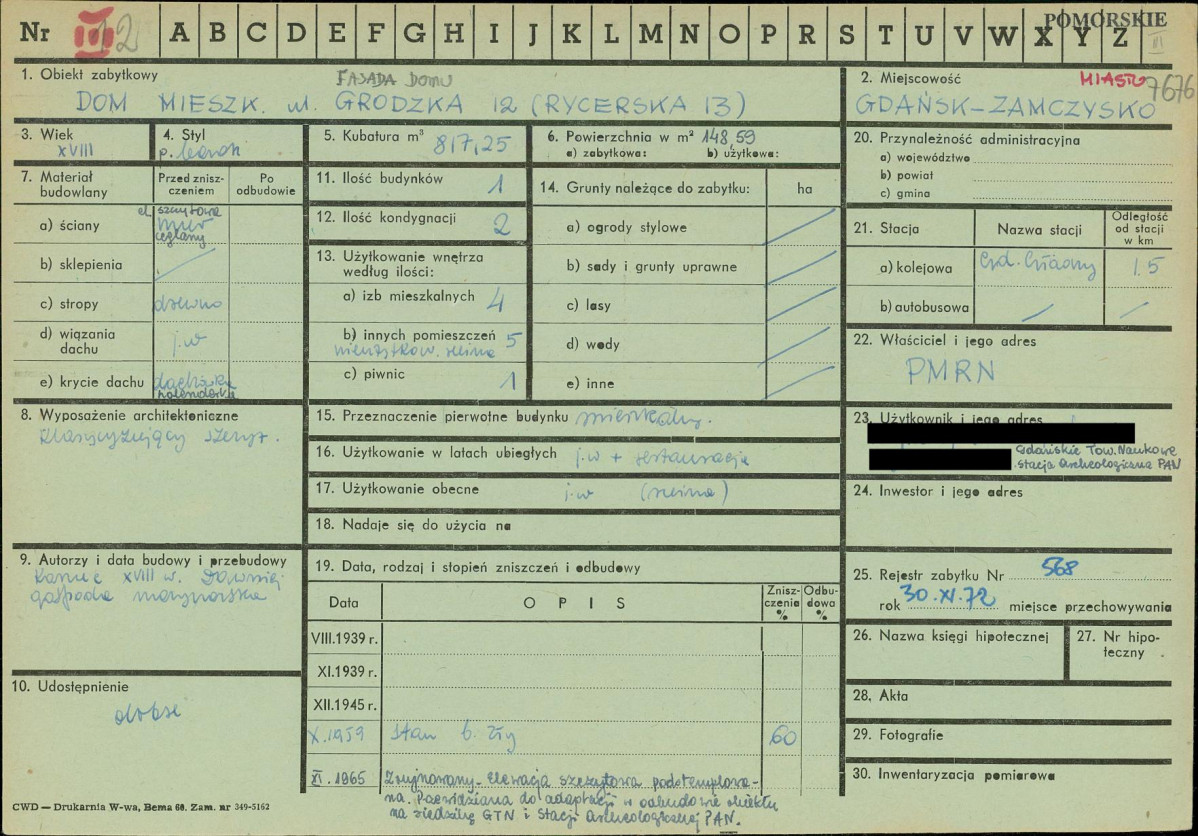 POMORSKIE
Nr 12 A B C D E F G H I J K L M N O P R S T U V W X Y Z III
1. Obiekt zabytkowy
FASADA DOMU
DOM MIESZK. ul. GRODZKA 12 (RYCERSKA 13)
2. Miejscowość MIASTO 7676
GDAŃSK-ZAMCZYSKO
3. Wiek
XVIII
4. Styl
p. barok
5. Kubatura m³ 817,25
6. Powierzchnia w m² 148,59
a) zabytkowa: b) użytkowa:
7. Materiał budowlany
Przed zniszczeniem
Po odbudowie
a) ściany el szczytowa mur ceglany
b) sklepienia
c) stropy drewno
d) wiązania dachu j.w
e) krycie dachu dachówka holenderka
8. Wyposażenie architektoniczne
Klasycyzujący szczyt.
9. Autorzy i data budowy i przebudowy
Koniec XVIII w. Dawniej
gospoda marynarska
10. Udostępnienie
dobre
11. Ilość budynków 1
12. Ilość kondygnacji 2
13. Użytkowanie wnętrza
według ilości:
a) izb mieszkalnych 4
b) innych pomieszczeń 5
nieużytkow. ruina
c) piwnic 1
14. Grunty należące do zabytku: ha
a) ogrody stylowe
b) sady i grunty uprawne
c) lasy
d) wody
e) inne
15. Przeznaczenie pierwotne budynku mieszkalny.
16. Użytkowanie w latach ubiegłych j.w + restauracja
17. Użytkowanie obecne j.w (ruina)
18. Nadaje się do użycia na
19. Data, rodzaj i stopień zniszczeń i odbudowy
Data OPIS Zniszczenia % Odbudowa %
VIII.1939 r.
XI.1939 r.
XII.1945 r.
X.1959 stan b. zły 60
XI.1965 Zrujnowany - Elewacja szczytowa podstemplowa-
na. Przewidziana do adaptacji w odbudowie obiektu
na siedzibę GTN i Stacji Archeologicznej PAN.
20. Przynależność administracyjna
a) województwo
b) powiat
c) gmina
21. Stacja
Nazwa stacji
Odległość od stacji w km
a) kolejowa Gd. Główny 1.5
b) autobusowa
22. Właściciel i jego adres
PMRN
23. Użytkownik i jego adres
Gdańskie Tow. Naukowe
Stacja Archeologiczna PAN
24. Inwestor i jego adres
25. Rejestr zabytku Nr 568
rok 30.XI.72 miejsce przechowywania
26. Nazwa księgi hipotecznej
27. Nr hipoteczny
28. Akta
29. Fotografie
30. Inwentaryzacja pomiarowa
CWD — Drukarnia W-wa, Bema 60. Zam. nr 349-5162